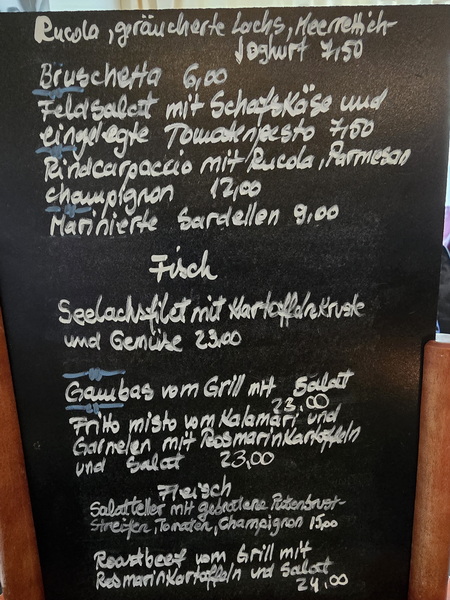 Rucola, geräucherte Lachs, Meerrettich-
Joghurt 7,50
Bruschetta 6,00
Feldsalat mit Schafskäse und
eingelegte Tomatenpesto 7,50
Rindcarpaccio mit Rucola, Parmesan
champignon 12,00
Marinierte Sardellen 9,00
Fisch
Seelachsfilet mit Kartoffelnkruste
und Gemüse 23,00
Gambas vom Grill mit Salat
23,00
Fritto misto vom Kalamari und
Garnelen mit Rosmarinkartoffeln
und Salat 23,00
Fleisch
Salatteller mit gebratene Putenbrust-
streifen, Tomaten, Champignon 15,00
Roastbeef vom Grill mit
Rosmarinkartoffeln und Salat
24,00